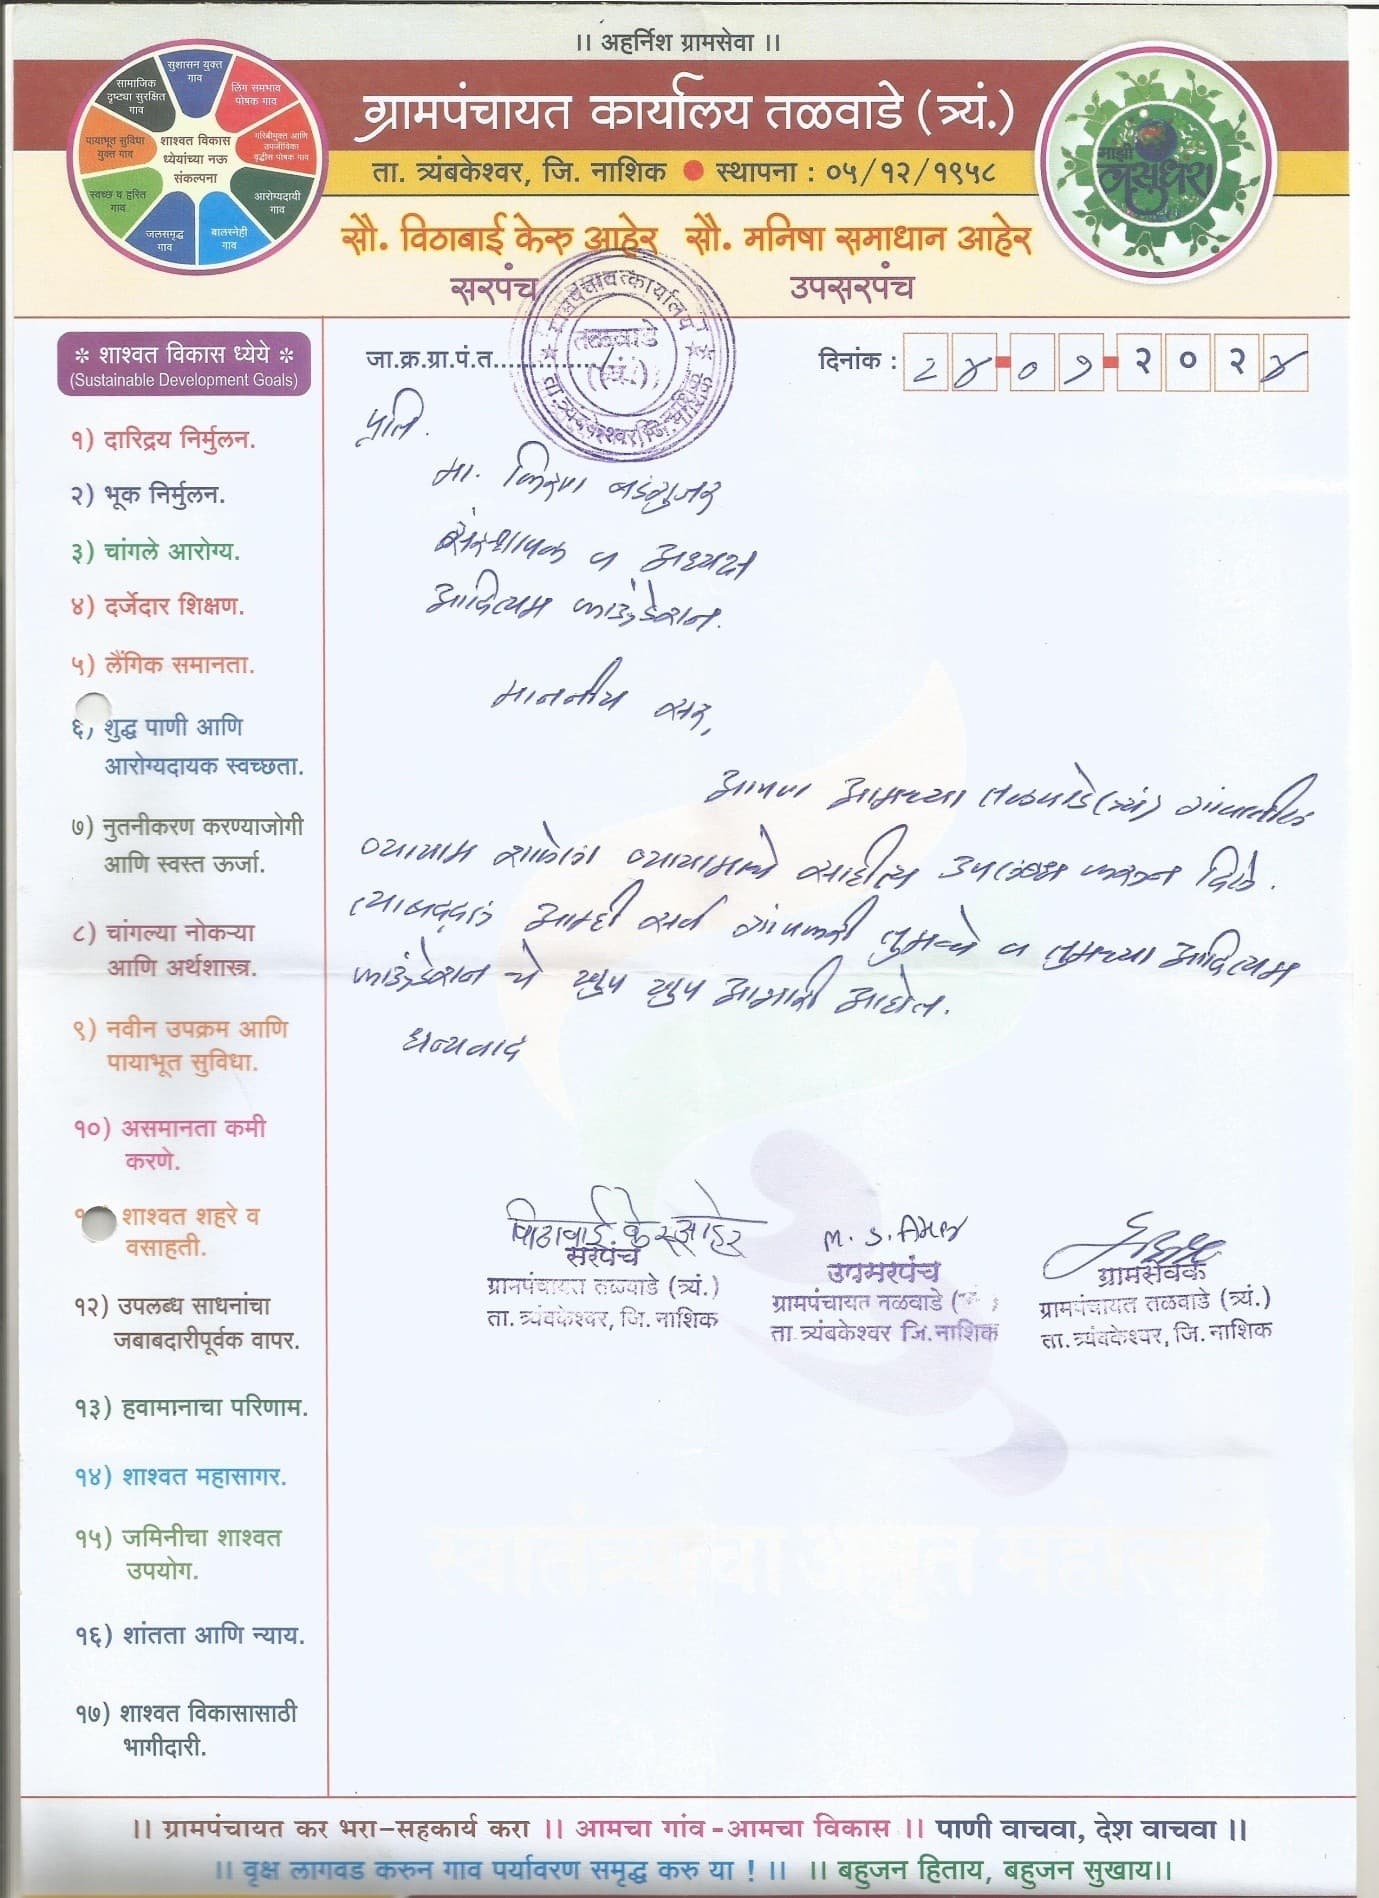 ।। अहर्निश ग्रामसेवा ।।
ग्रामपंचायत कार्यालय तळवाडे (त्र्यं.)
ता. त्र्यंबकेश्वर, जि. नाशिक ● स्थापना : ०५/१२/१९५८
सौ. विठाबाई केरु आहेर सौ. मनिषा समाधान आहेर
सरपंच उपसरपंच
सुशासन युक्त गाव
लिंग समभाव पोषक गाव
गरिबीमुक्त आणि उपजीविका वृद्धीस पोषक गाव
आरोग्यदायी गाव
बालस्नेही गाव
जलसमृद्ध गाव
स्वच्छ व हरित गाव
पायाभूत सुविधा युक्त गाव
सामाजिक दृष्ट्या सुरक्षित गाव
शाश्वत विकास
ध्येयांच्या नऊ
संकल्पना
माझी
वसुंधरा
जा.क्र.ग्रा.पं.त..............
दिनांक : २४-०७-२०२४
तळवाडे
(त्र्यं.)
ता.त्र्यंबकेश्वर,जि.नाशिक
प्रति.
मा. किरण बडगुजर
संस्थापक व अध्यक्ष
आदित्यम फाऊंडेशन.
माननीय सर,
आपण आमच्या तळवाडे(त्र्यं) गांवातील
व्यायाम शाळेला व्यायामाचे साहीत्य उपलब्ध करुन दिले.
त्याबद्दल आम्ही सर्व गांवकरी तुमचे व तुमच्या आदित्यम
फाऊंडेशन चे खुप खुप आभारी आहोत.
धन्यवाद
विठाबाई केरू आहेर
सरपंच
ग्रामपंचायत तळवाडे (त्र्यं.)
ता. त्र्यंबकेश्वर, जि. नाशिक
M. S. Aher
उपसरपंच
ग्रामपंचायत तळवाडे
ता. त्र्यंबकेश्वर जि.नाशिक
ग्रामसेवक
ग्रामपंचायत तळवाडे (त्र्यं.)
ता. त्र्यंबकेश्वर, जि. नाशिक
स्वातंत्र्याचा अमृत महोत्सव
❊ शाश्वत विकास ध्येये ❊
(Sustainable Development Goals)
१) दारिद्रय निर्मुलन.
२) भूक निर्मुलन.
३) चांगले आरोग्य.
४) दर्जेदार शिक्षण.
५) लैंगिक समानता.
६) शुद्ध पाणी आणि
आरोग्यदायक स्वच्छता.
७) नुतनीकरण करण्याजोगी
आणि स्वस्त ऊर्जा.
८) चांगल्या नोकऱ्या
आणि अर्थशास्त्र.
९) नवीन उपक्रम आणि
पायाभूत सुविधा.
१०) असमानता कमी
करणे.
शाश्वत शहरे व
वसाहती.
१२) उपलब्ध साधनांचा
जबाबदारीपूर्वक वापर.
१३) हवामानाचा परिणाम.
१४) शाश्वत महासागर.
१५) जमिनीचा शाश्वत
उपयोग.
१६) शांतता आणि न्याय.
१७) शाश्वत विकासासाठी
भागीदारी.
।। ग्रामपंचायत कर भरा-सहकार्य करा ।। आमचा गांव -आमचा विकास ।। पाणी वाचवा, देश वाचवा ।।
।। वृक्ष लागवड करुन गाव पर्यावरण समृद्ध करु या ! ।। ।। बहुजन हिताय, बहुजन सुखाय।।